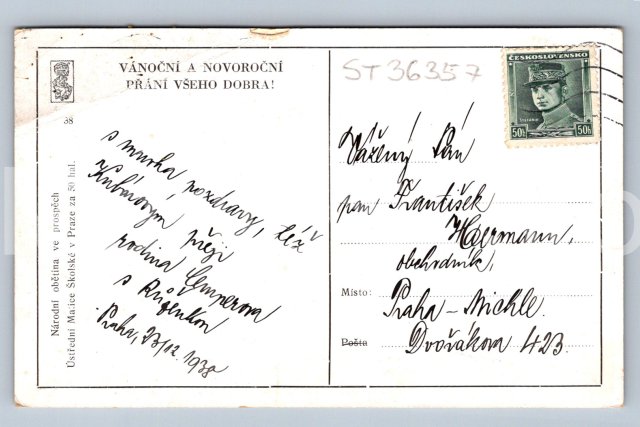 VÁNOČNÍ A NOVOROČNÍ
PŘÁNÍ VŠEHO DOBRA!
38
Národní obětina ve prospěch
Ústřední Matice Školské v Praze za 50 hal.
s mnoha pozdravy, též
Kubárovým přeji
rodina
s Růženkou
Praha, 23/12. 1938
ST36357
ČESKOSLOVENSKO
ŠTEFÁNIK
50h 50h
Vážený Pán
pan František
Haermann,
obchodník,
Místo: Praha – Michle.
Pošta Dvořákova 423.